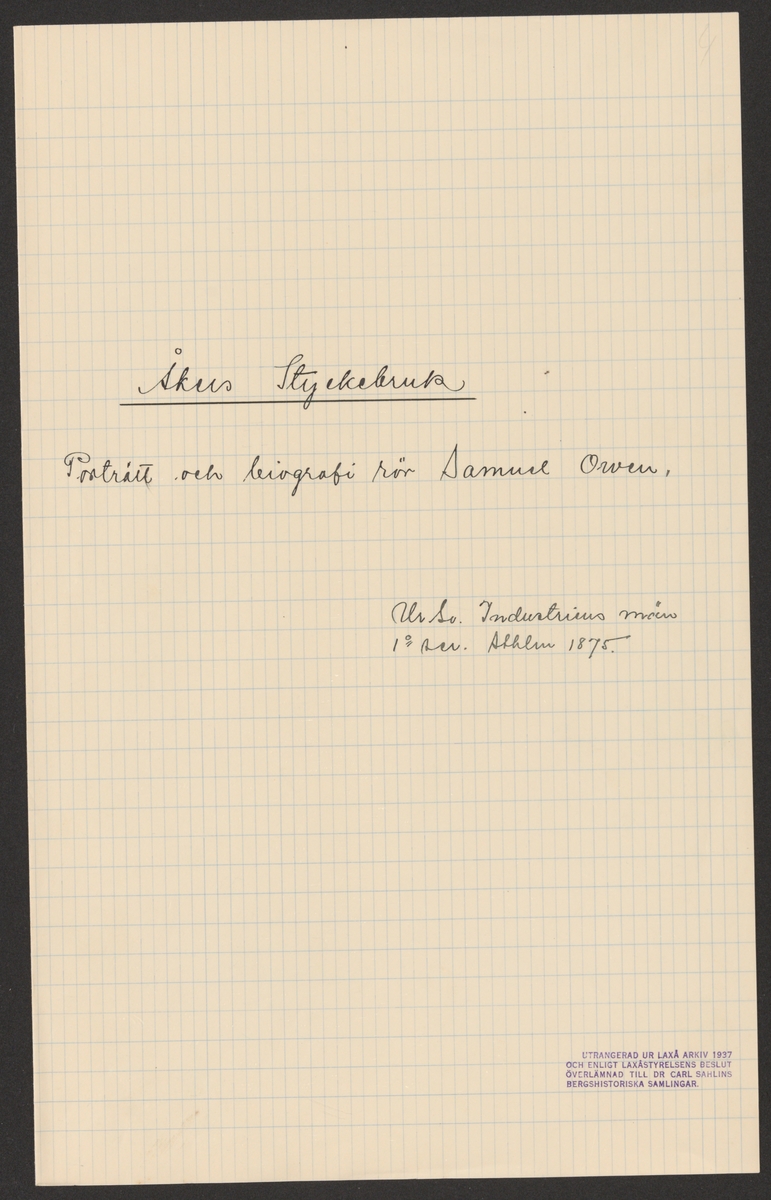 4
Åkers Styckebruk
Porträtt och biografi rör Samuel Owen.
Ur Sv. Industriens män
1º ser. Sthlm 1875.
UTRANGERAD UR LAXÅ ARKIV 1937
OCH ENLIGT LAXÅSTYRELSENS BESLUT
ÖVERLÄMNAD TILL DR CARL SAHLINS
BERGSHISTORISKA SAMLINGAR.